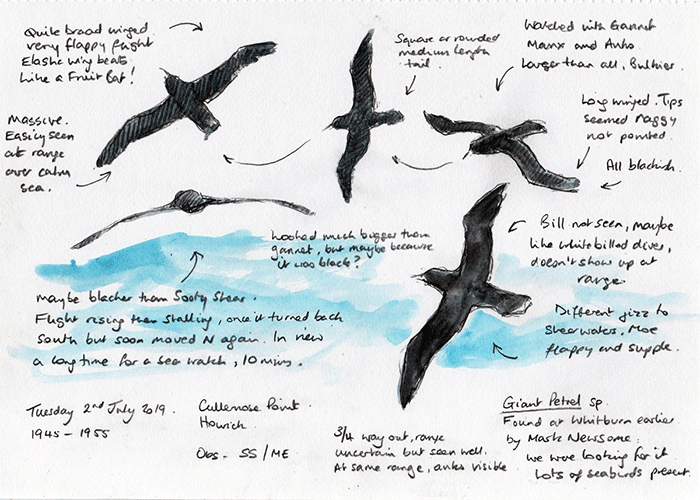 Quite broad winged
very flappy flight
Elastic wing beats
Like a Fruit Bat!
Square or rounded
medium length
tail.
Watched with Gannet
Manx and Auks
Larger than all, Bulkier.
Massive.
Easily seen
at range
over calm
sea.
Long winged. Tips
seemed raggy
not pointed.
All blackish.
Looked much bigger than
gannet, but maybe because
it was black?
Bill not seen, maybe
like white billed diver,
doesn't show up at
range
maybe blacker than Sooty Shear.
Flight rising then stalling, once it turned back
south but soon moved N again. In view
a long time for a sea watch, 10 mins.
Different jizz to
shearwaters. More
flappy and supple.
Tuesday 2nd July 2019.
1945 - 1955
Cullernose Point.
Howick.
Obs - SS / ME
3/4 way out, range
uncertain but seen well.
At same range, auks visible
Giant Petrel sp.
Found at Whitburn earlier
by Mark Newsome.
we were looking for it
Lots of seabirds present.